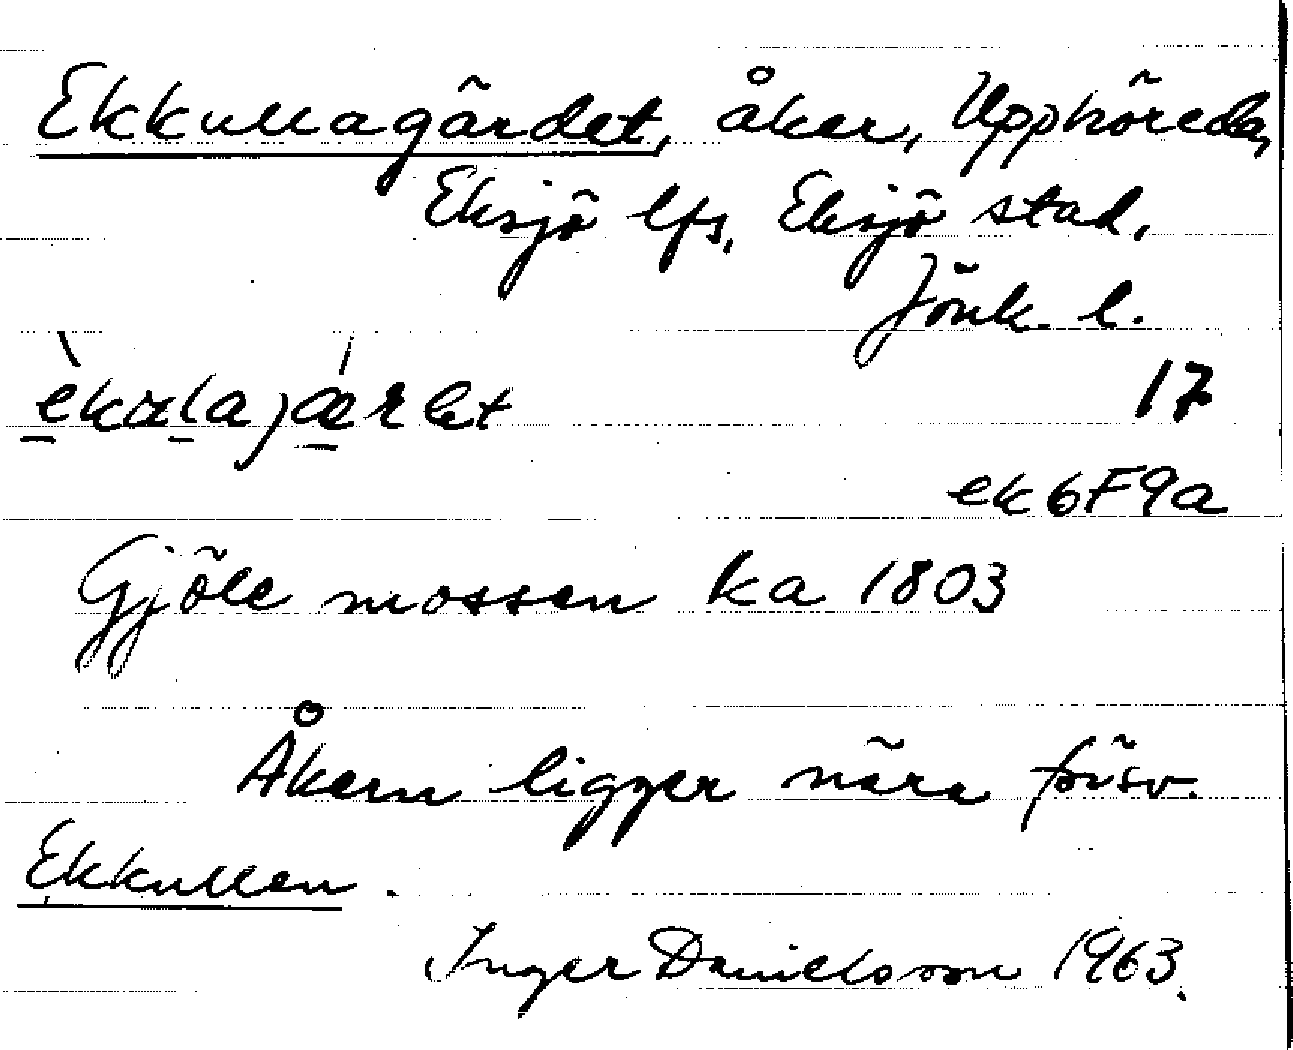 Ekkullagärdet, åker, Upphöreda,
Eksjö lfs, Eksjö stad,
Jönk. l.
èkulajǽrlet
17
ek 6F9a
Gjöle mossen ka 1803
Åkern ligger nära försv.
Ekkullen.
Inger Danielsson 1963.